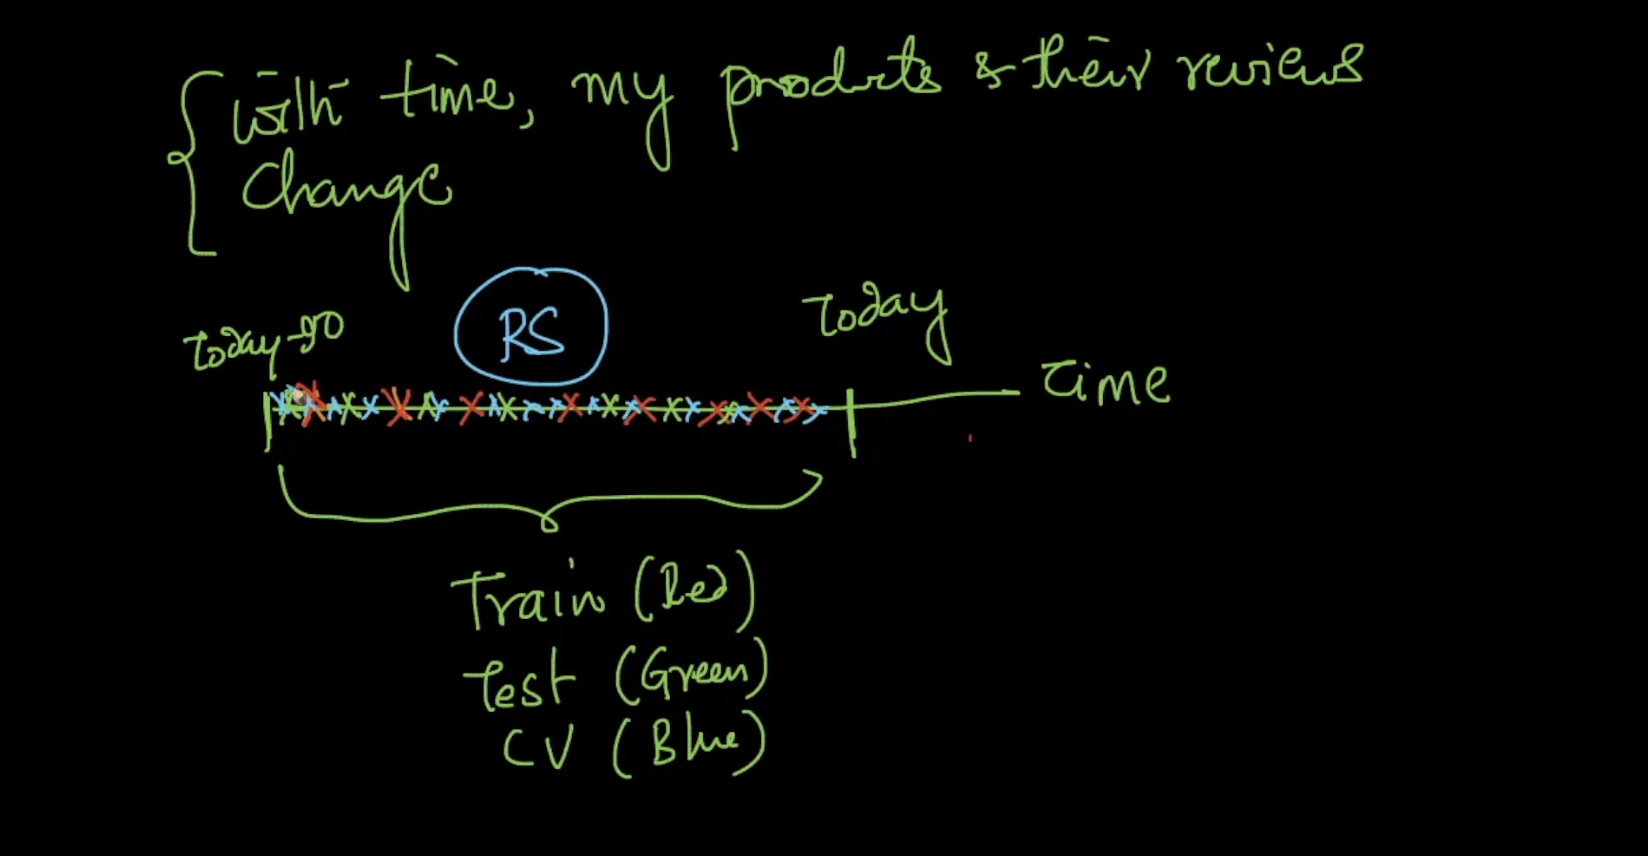 with time, my products & their reviews
change
RS
Today
Today-90
Time
Train (Red)
Test (Green)
CV (Blue)